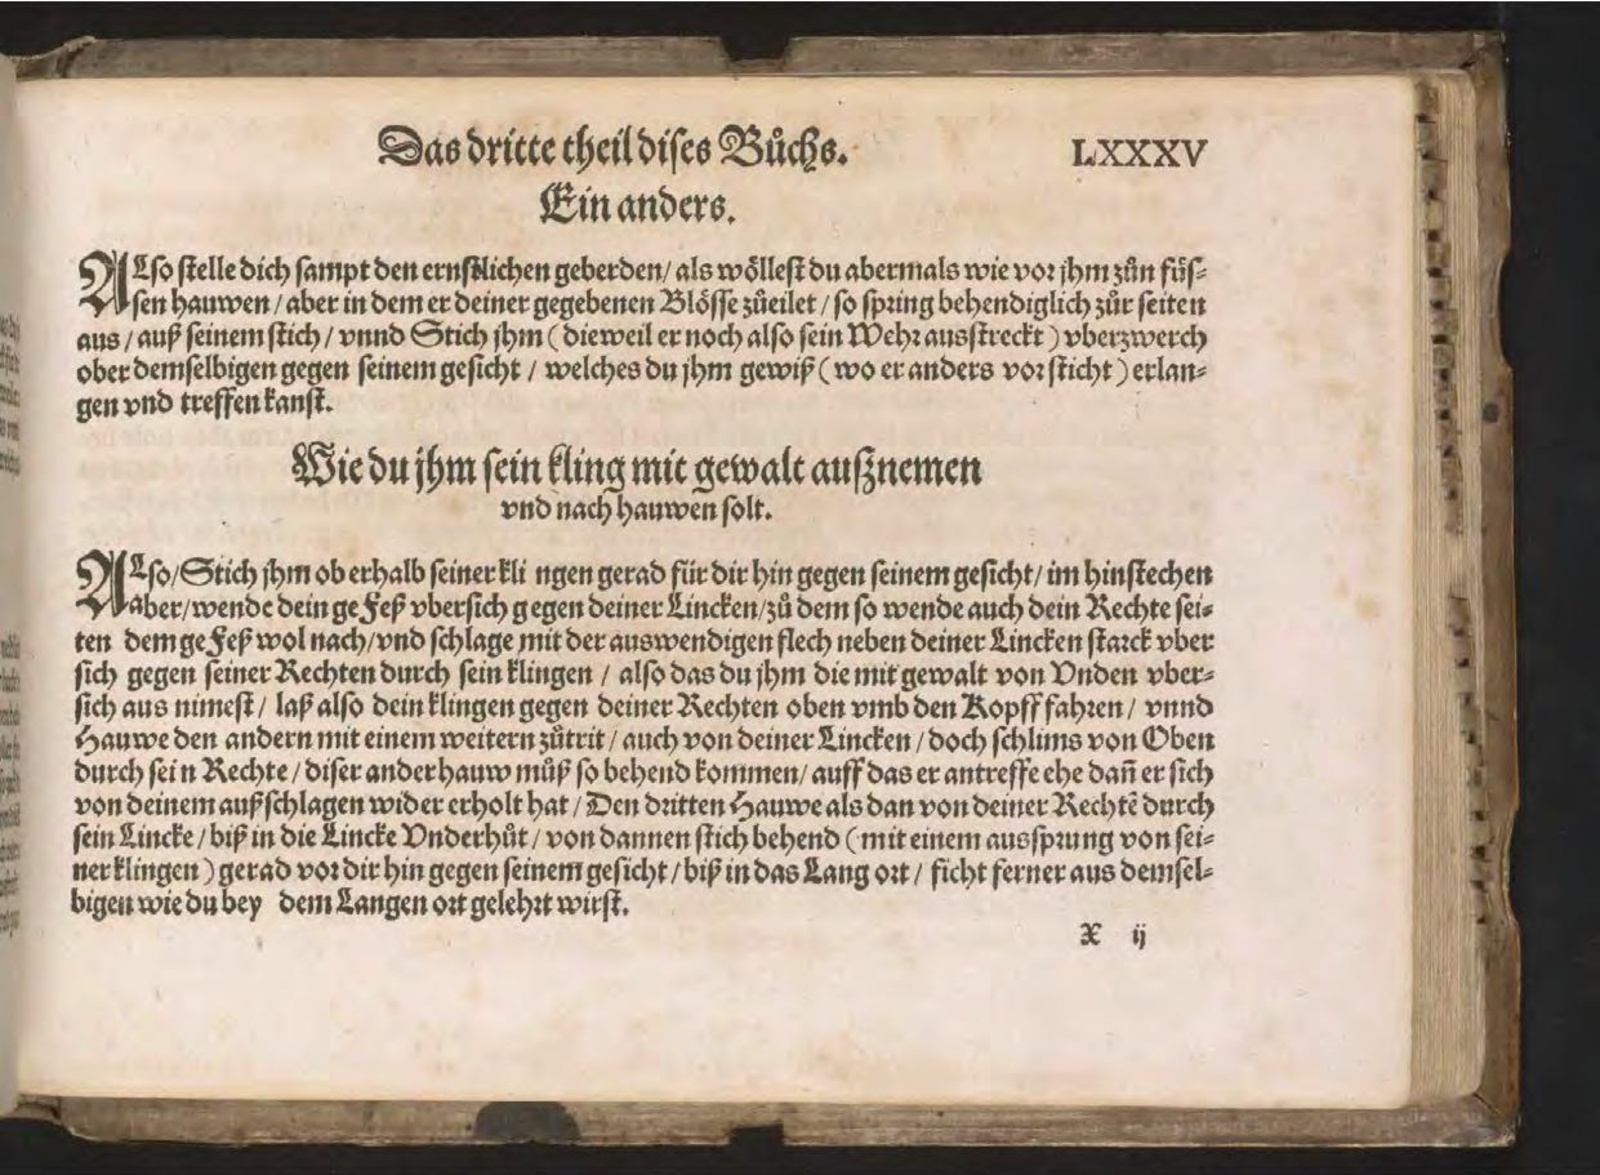 Das dritte theil dises Bůchs. LXXXV
Ein anders.
ALso stelle dich sampt den ernstlichen geberden / als wöllest du abermals wie vor jhm zůn füs-
sen hauwen / aber in dem er deiner gegebenen Blösse zůeilet / so spring behendiglich zůr seiten
aus / auß seinem stich / vnnd Stich jhm ( dieweil er noch also sein Wehr ausstreckt ) vberzwerch
ober demselbigen gegen seinem gesicht / welches du jhm gewiß ( wo er anders vor sticht ) erlan-
gen vnd treffen kanst.
Wie du jhm sein kling mit gewalt außnemen
vnd nach hauwen solt.
ALso / Stich jhm oberhalb seiner kli ngen gerad für dir hin gegen seinem gesicht / im hinstechen
aber / wende dein geFeß vbersich gegen deiner Lincken / zů dem so wende auch dein Rechte sei-
ten dem geFeß wol nach / vnd schlage mit der auswendigen flech neben deiner Lincken starck vber
sich gegen seiner Rechten durch sein klingen / also das du jhm die mit gewalt von Vnden vber-
sich aus nimest / laß also dein klingen gegen deiner Rechten oben vmb den Kopff fahren / vnnd
Hauwe den andern mit einem weitern zůtrit / auch von deiner Lincken / doch schlims von Oben
durch sein Rechte / diser ander hauw můß so behend kommen / auff das er antreffe ehe dañ er sich
von deinem außschlagen wider erholt hat / Den dritten Hauwe als dan von deiner Rechtē durch
sein Lincke / biß in die Lincke Vnderhůt / von dannen stich behend ( mit einem aussprung von sei-
ner klingen ) gerad vor dir hin gegen seinem gesicht / biß in das Lang ort / ficht ferner aus demsel-
bigen wie du bey dem Langen ort gelehrt wirst.
X ij